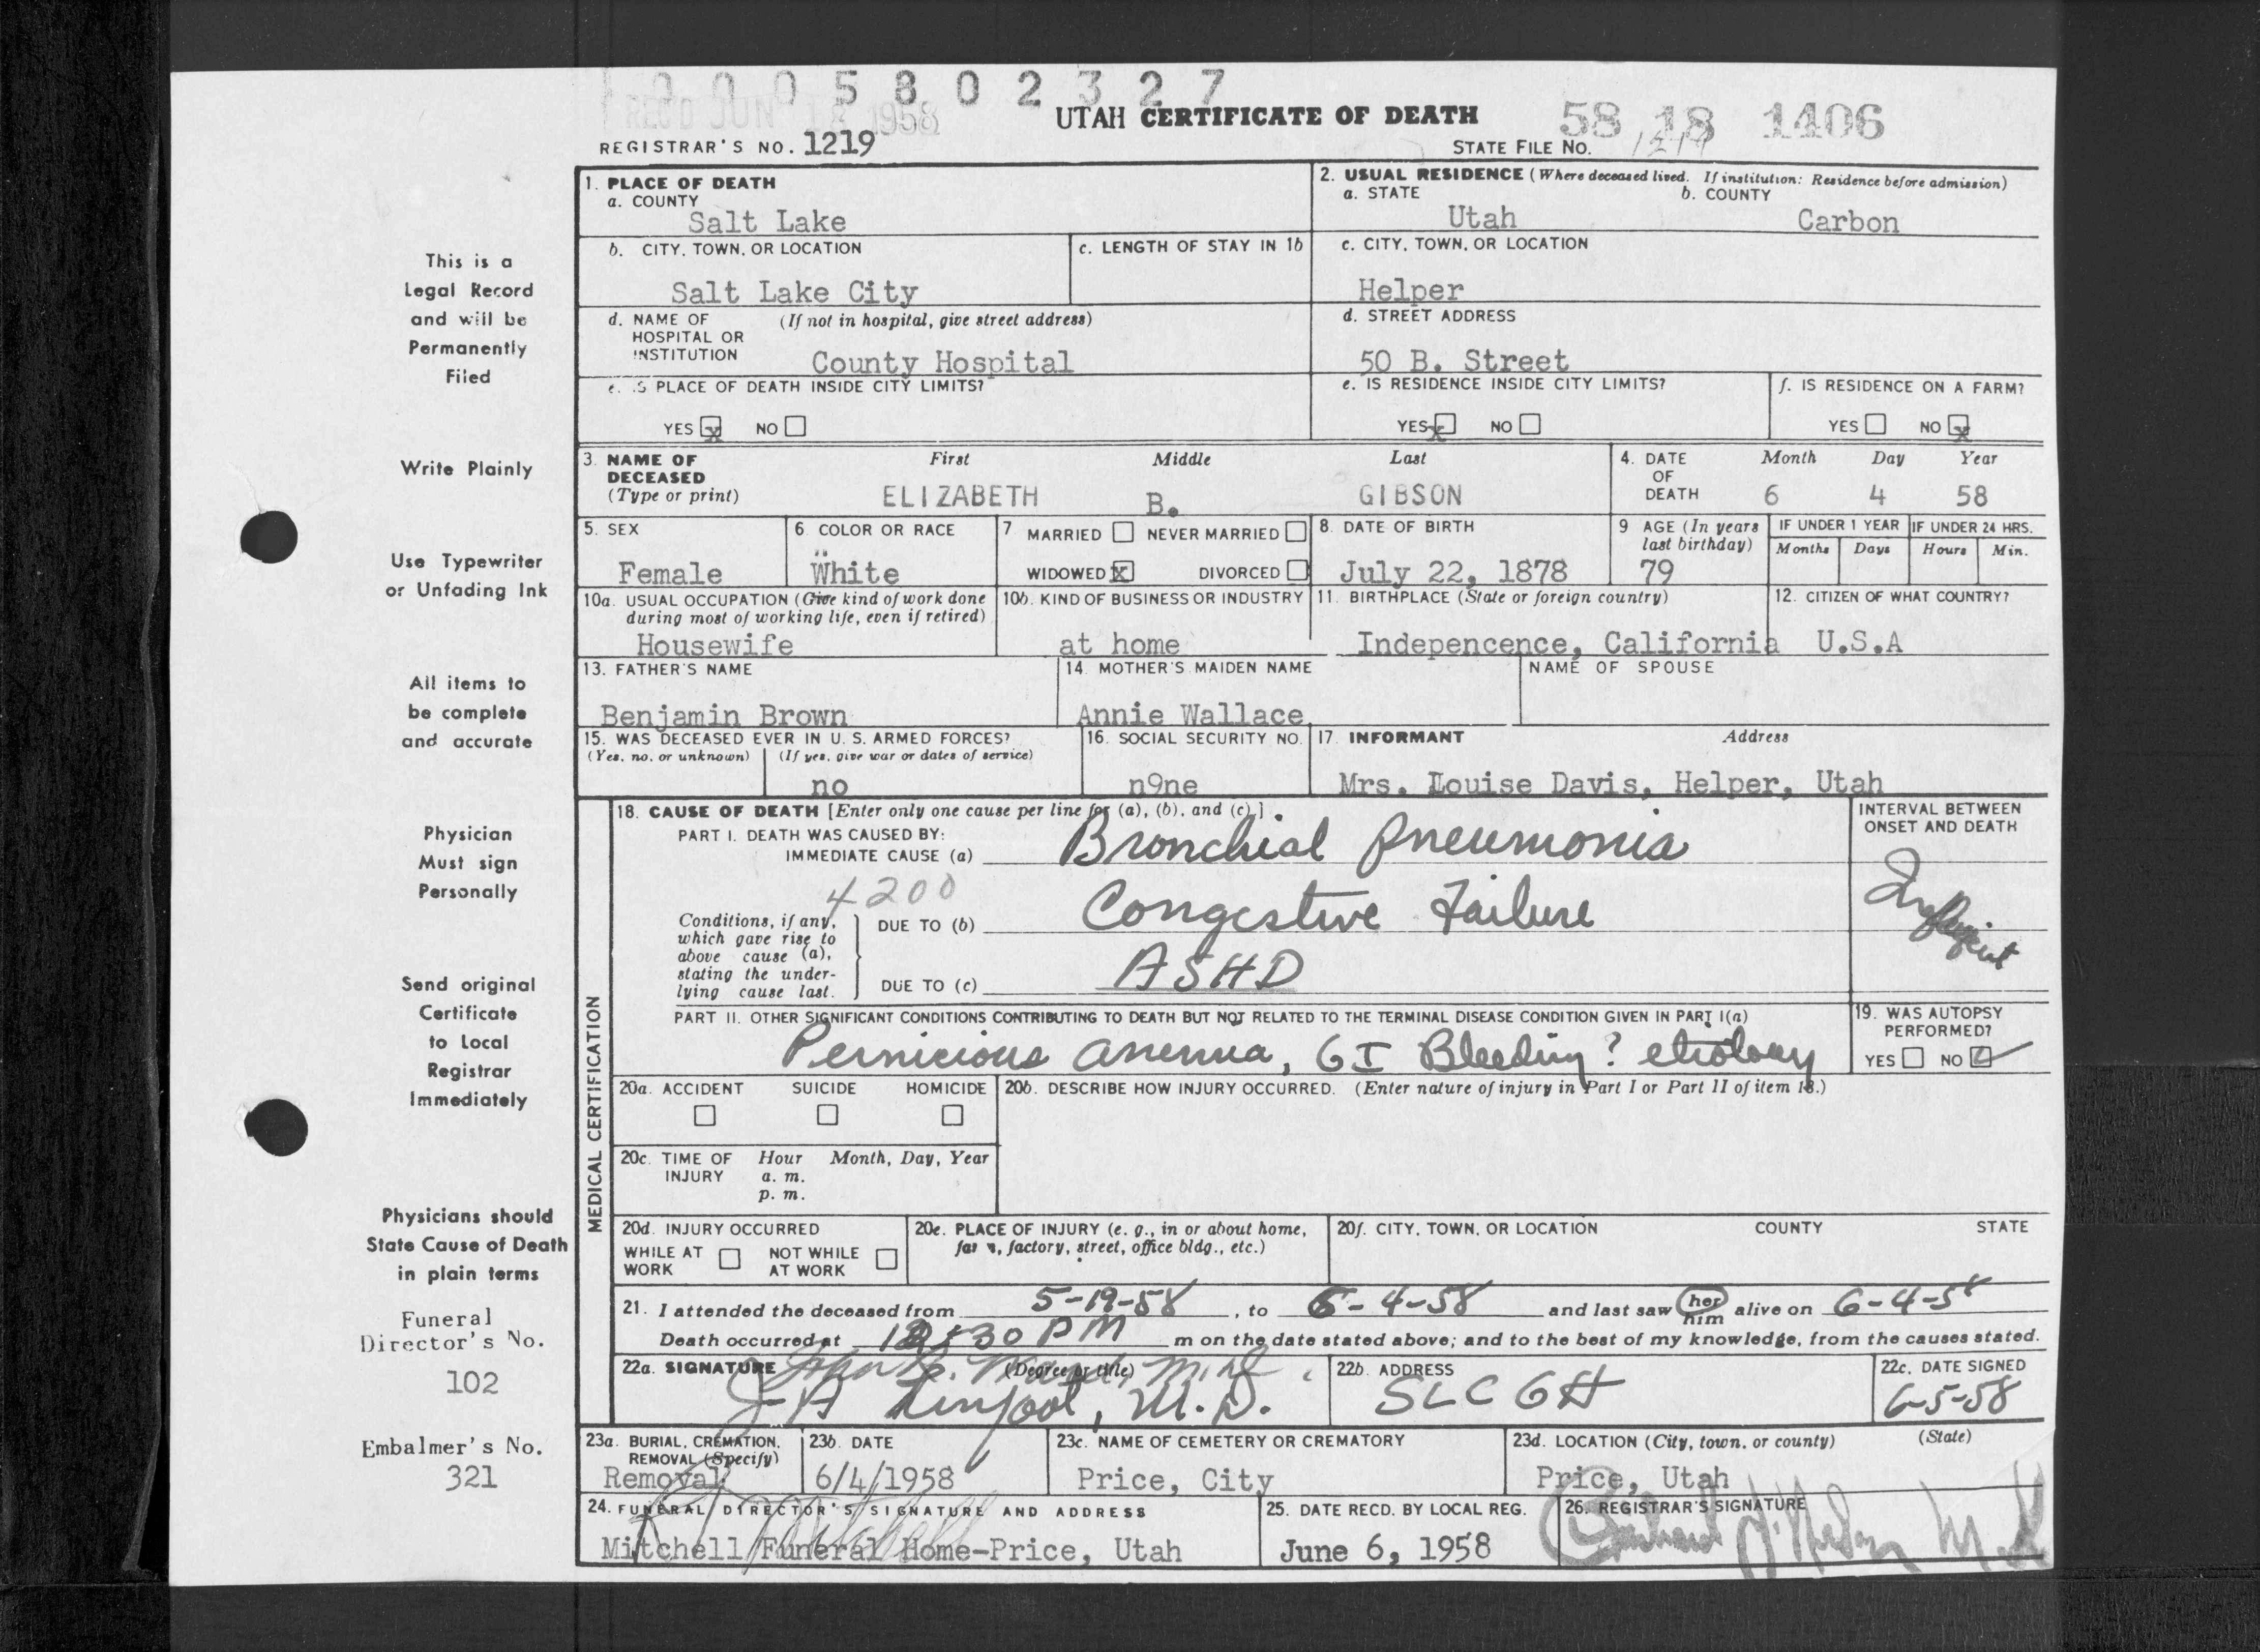 0 0 0 5 8 0 2 3 2 7
REC'D JUN 1958
UTAH CERTIFICATE OF DEATH
58 18 1406
REGISTRAR'S NO. 1219
STATE FILE NO. 1219
1. PLACE OF DEATH
a. COUNTY
Salt Lake
2. USUAL RESIDENCE (Where deceased lived. If institution: Residence before admission)
a. STATE
Utah
b. COUNTY
Carbon
b. CITY, TOWN, OR LOCATION
Salt Lake City
c. LENGTH OF STAY IN 1b
c. CITY, TOWN, OR LOCATION
Helper
d. NAME OF HOSPITAL OR INSTITUTION
(If not in hospital, give street address)
County Hospital
d. STREET ADDRESS
50 B. Street
e. IS PLACE OF DEATH INSIDE CITY LIMITS?
YES x NO
e. IS RESIDENCE INSIDE CITY LIMITS?
YES x NO
f. IS RESIDENCE ON A FARM?
YES NO x
3. NAME OF DECEASED
(Type or print)
First Middle Last
ELIZABETH B. GIBSON
4. DATE OF DEATH
Month Day Year
6 4 58
5. SEX
Female
6 COLOR OR RACE
White
7 MARRIED NEVER MARRIED
WIDOWED X DIVORCED
8. DATE OF BIRTH
July 22, 1878
9 AGE (In years last birthday)
79
IF UNDER 1 YEAR
Months Days
IF UNDER 24 HRS.
Hours Min.
10a. USUAL OCCUPATION (Give kind of work done during most of working life, even if retired)
Housewife
10b. KIND OF BUSINESS OR INDUSTRY
at home
11. BIRTHPLACE (State or foreign country)
Indepencence, California
12. CITIZEN OF WHAT COUNTRY?
U.S.A
13. FATHER'S NAME
Benjamin Brown
14. MOTHER'S MAIDEN NAME
Annie Wallace
NAME OF SPOUSE
15. WAS DECEASED EVER IN U. S. ARMED FORCES?
(Yes, no, or unknown) (If yes, give war or dates of service)
no
16. SOCIAL SECURITY NO.
n9ne
17. INFORMANT Address
Mrs. Louise Davis, Helper, Utah
18. CAUSE OF DEATH [Enter only one cause per line for (a), (b), and (c).]
PART I. DEATH WAS CAUSED BY:
IMMEDIATE CAUSE (a) Bronchial Pneumonia
4200
Conditions, if any, which gave rise to above cause (a), stating the underlying cause last.
DUE TO (b) Congestive Failure
DUE TO (c) ASHD
INTERVAL BETWEEN ONSET AND DEATH
PART II. OTHER SIGNIFICANT CONDITIONS CONTRIBUTING TO DEATH BUT NOT RELATED TO THE TERMINAL DISEASE CONDITION GIVEN IN PART I(a)
Pernicious anemia, GI Bleeding ? etiology
19. WAS AUTOPSY PERFORMED?
YES NO
MEDICAL CERTIFICATION
20a. ACCIDENT SUICIDE HOMICIDE
20b. DESCRIBE HOW INJURY OCCURRED. (Enter nature of injury in Part I or Part II of item 18.)
20c. TIME OF INJURY
Hour Month, Day, Year
a. m.
p. m.
20d. INJURY OCCURRED
WHILE AT WORK
NOT WHILE AT WORK
20e. PLACE OF INJURY (e. g., in or about home, farm, factory, street, office bldg., etc.)
20f. CITY, TOWN, OR LOCATION COUNTY STATE
21. I attended the deceased from 5-19-58, to 6-4-58 and last saw her him alive on 6-4-58
Death occurred at 12:30 PM m on the date stated above; and to the best of my knowledge, from the causes stated.
22a. SIGNATURE (Degree or title)
M.D.
22b. ADDRESS
SLCGH
22c. DATE SIGNED
6-5-58
23a. BURIAL, CREMATION, REMOVAL (Specify)
Removal
23b. DATE
6/4/1958
23c. NAME OF CEMETERY OR CREMATORY
Price, City
23d. LOCATION (City, town, or county) (State)
Price, Utah
24. FUNERAL DIRECTOR'S SIGNATURE AND ADDRESS
Mitchell Funeral Home-Price, Utah
25. DATE RECD. BY LOCAL REG.
June 6, 1958
26. REGISTRAR'S SIGNATURE
This is a
Legal Record
and will be
Permanently
Filed
Write Plainly
Use Typewriter
or Unfading Ink
All items to
be complete
and accurate
Physician
Must sign
Personally
Send original
Certificate
to Local
Registrar
Immediately
Physicians should
State Cause of Death
in plain terms
Funeral
Director's No.
102
Embalmer's No.
321